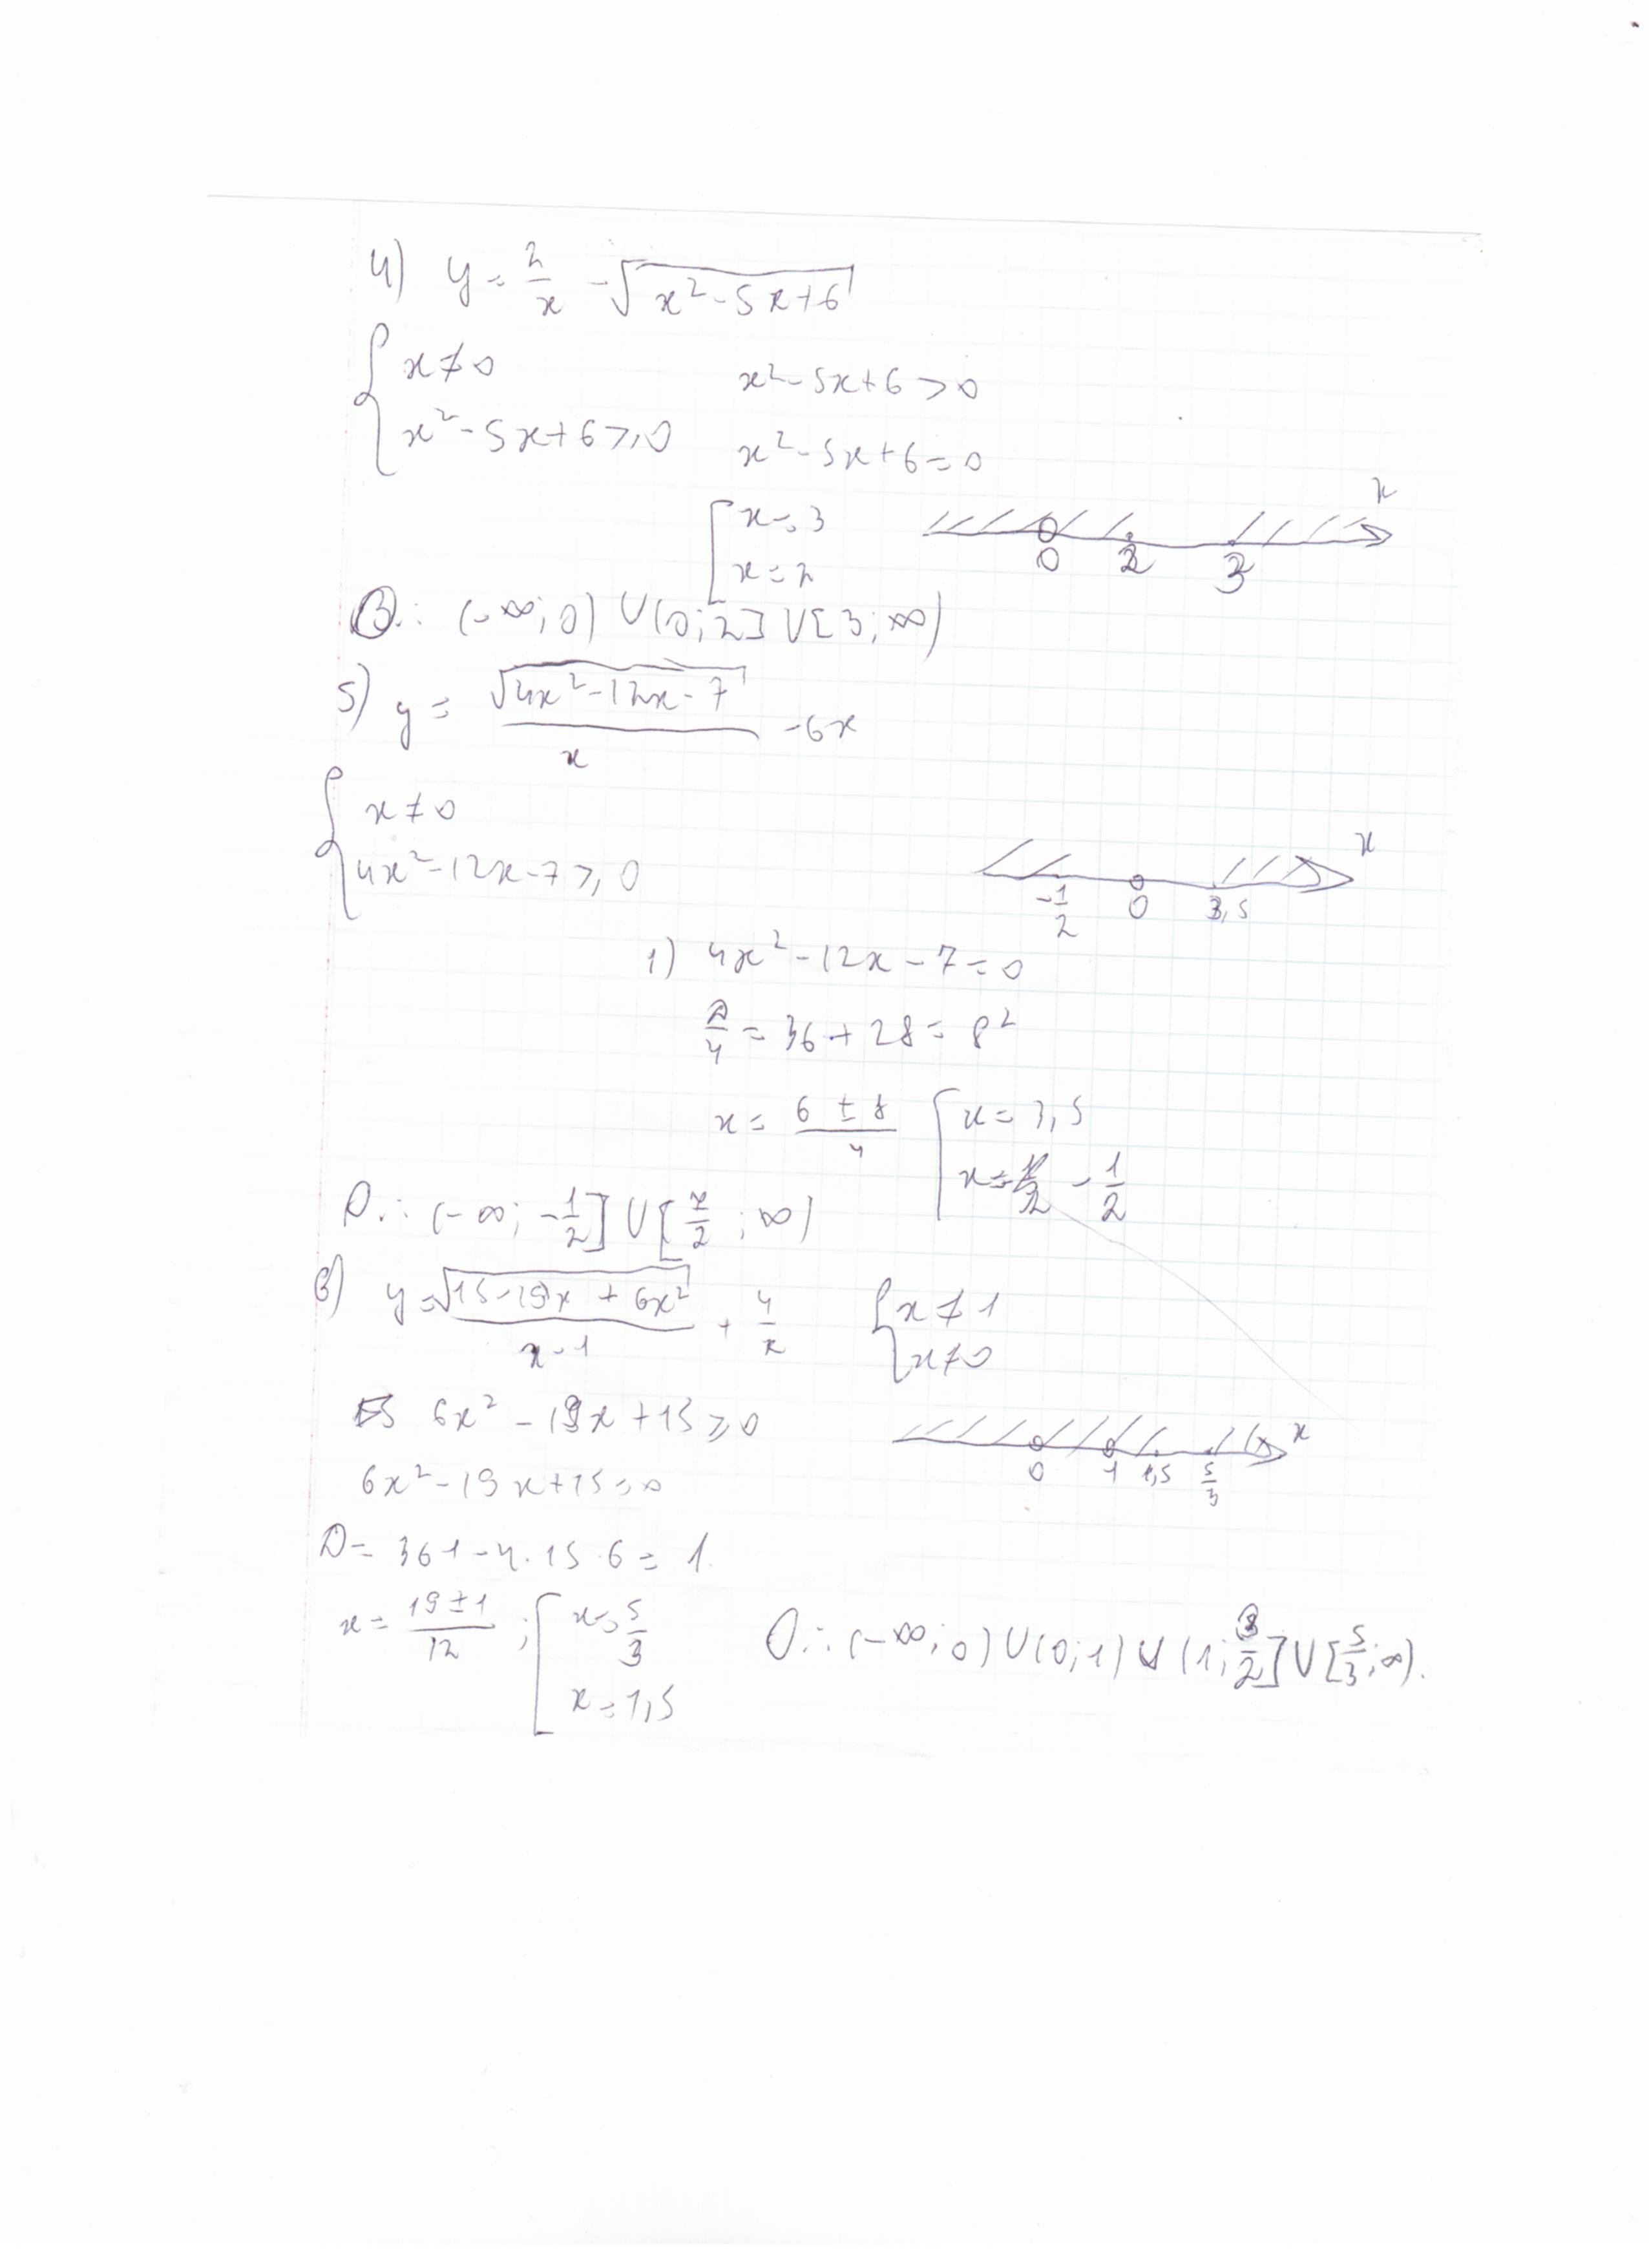 4) y = 2/x - √(x² - 5x + 6)
{ x ≠ 0
x² - 5x + 6 ≥ 0
x² - 5x + 6 > 0
x² - 5x + 6 = 0
[ x = 3
x = 2
0 2 3 x
О.: (-∞; 0) ∪ (0; 2] ∪ [3; ∞)
5) y = √(4x² - 12x - 7)/x - 6x
{ x ≠ 0
4x² - 12x - 7 ≥ 0
-1/2 0 3,5 x
1) 4x² - 12x - 7 = 0
D/4 = 36 + 28 = 8²
x = (6 ± 8)/4 [ x = 3,5
x = -1/2
О.: (-∞; -1/2] ∪ [7/2; ∞)
6) y = √(15 - 19x + 6x²)/(x - 1) + 4/x { x ≠ 1
x ≠ 0
6x² - 19x + 15 ≥ 0
0 1 1,5 5/3 x
6x² - 19x + 15 = 0
D = 361 - 4 · 15 · 6 = 1.
x = (19 ± 1)/12 ; [ x = 5/3
x = 1,5
О.: (-∞; 0) ∪ (0; 1) ∪ (1; 3/2] ∪ [5/3; ∞).